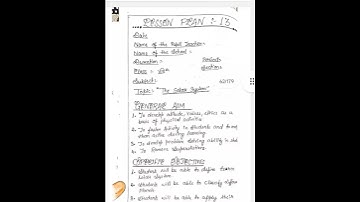 LESSON PLAN : 13
Date
Name of the Pupil Teacher:-
Name of the School :-
Duration :-
Class :-
Subject:-
Topic:- "The Solar System"
GENERAL AIM
1- To develop attitude, values, ethics as a
basis of physical
2- To foster in students and to make
them active during learning.
3- To develop problem solving ability in
4- To Remove Superstitions.
1- Student will be able to define
Solar System
2- Student will be able to classify
3- Student will be able to apply their